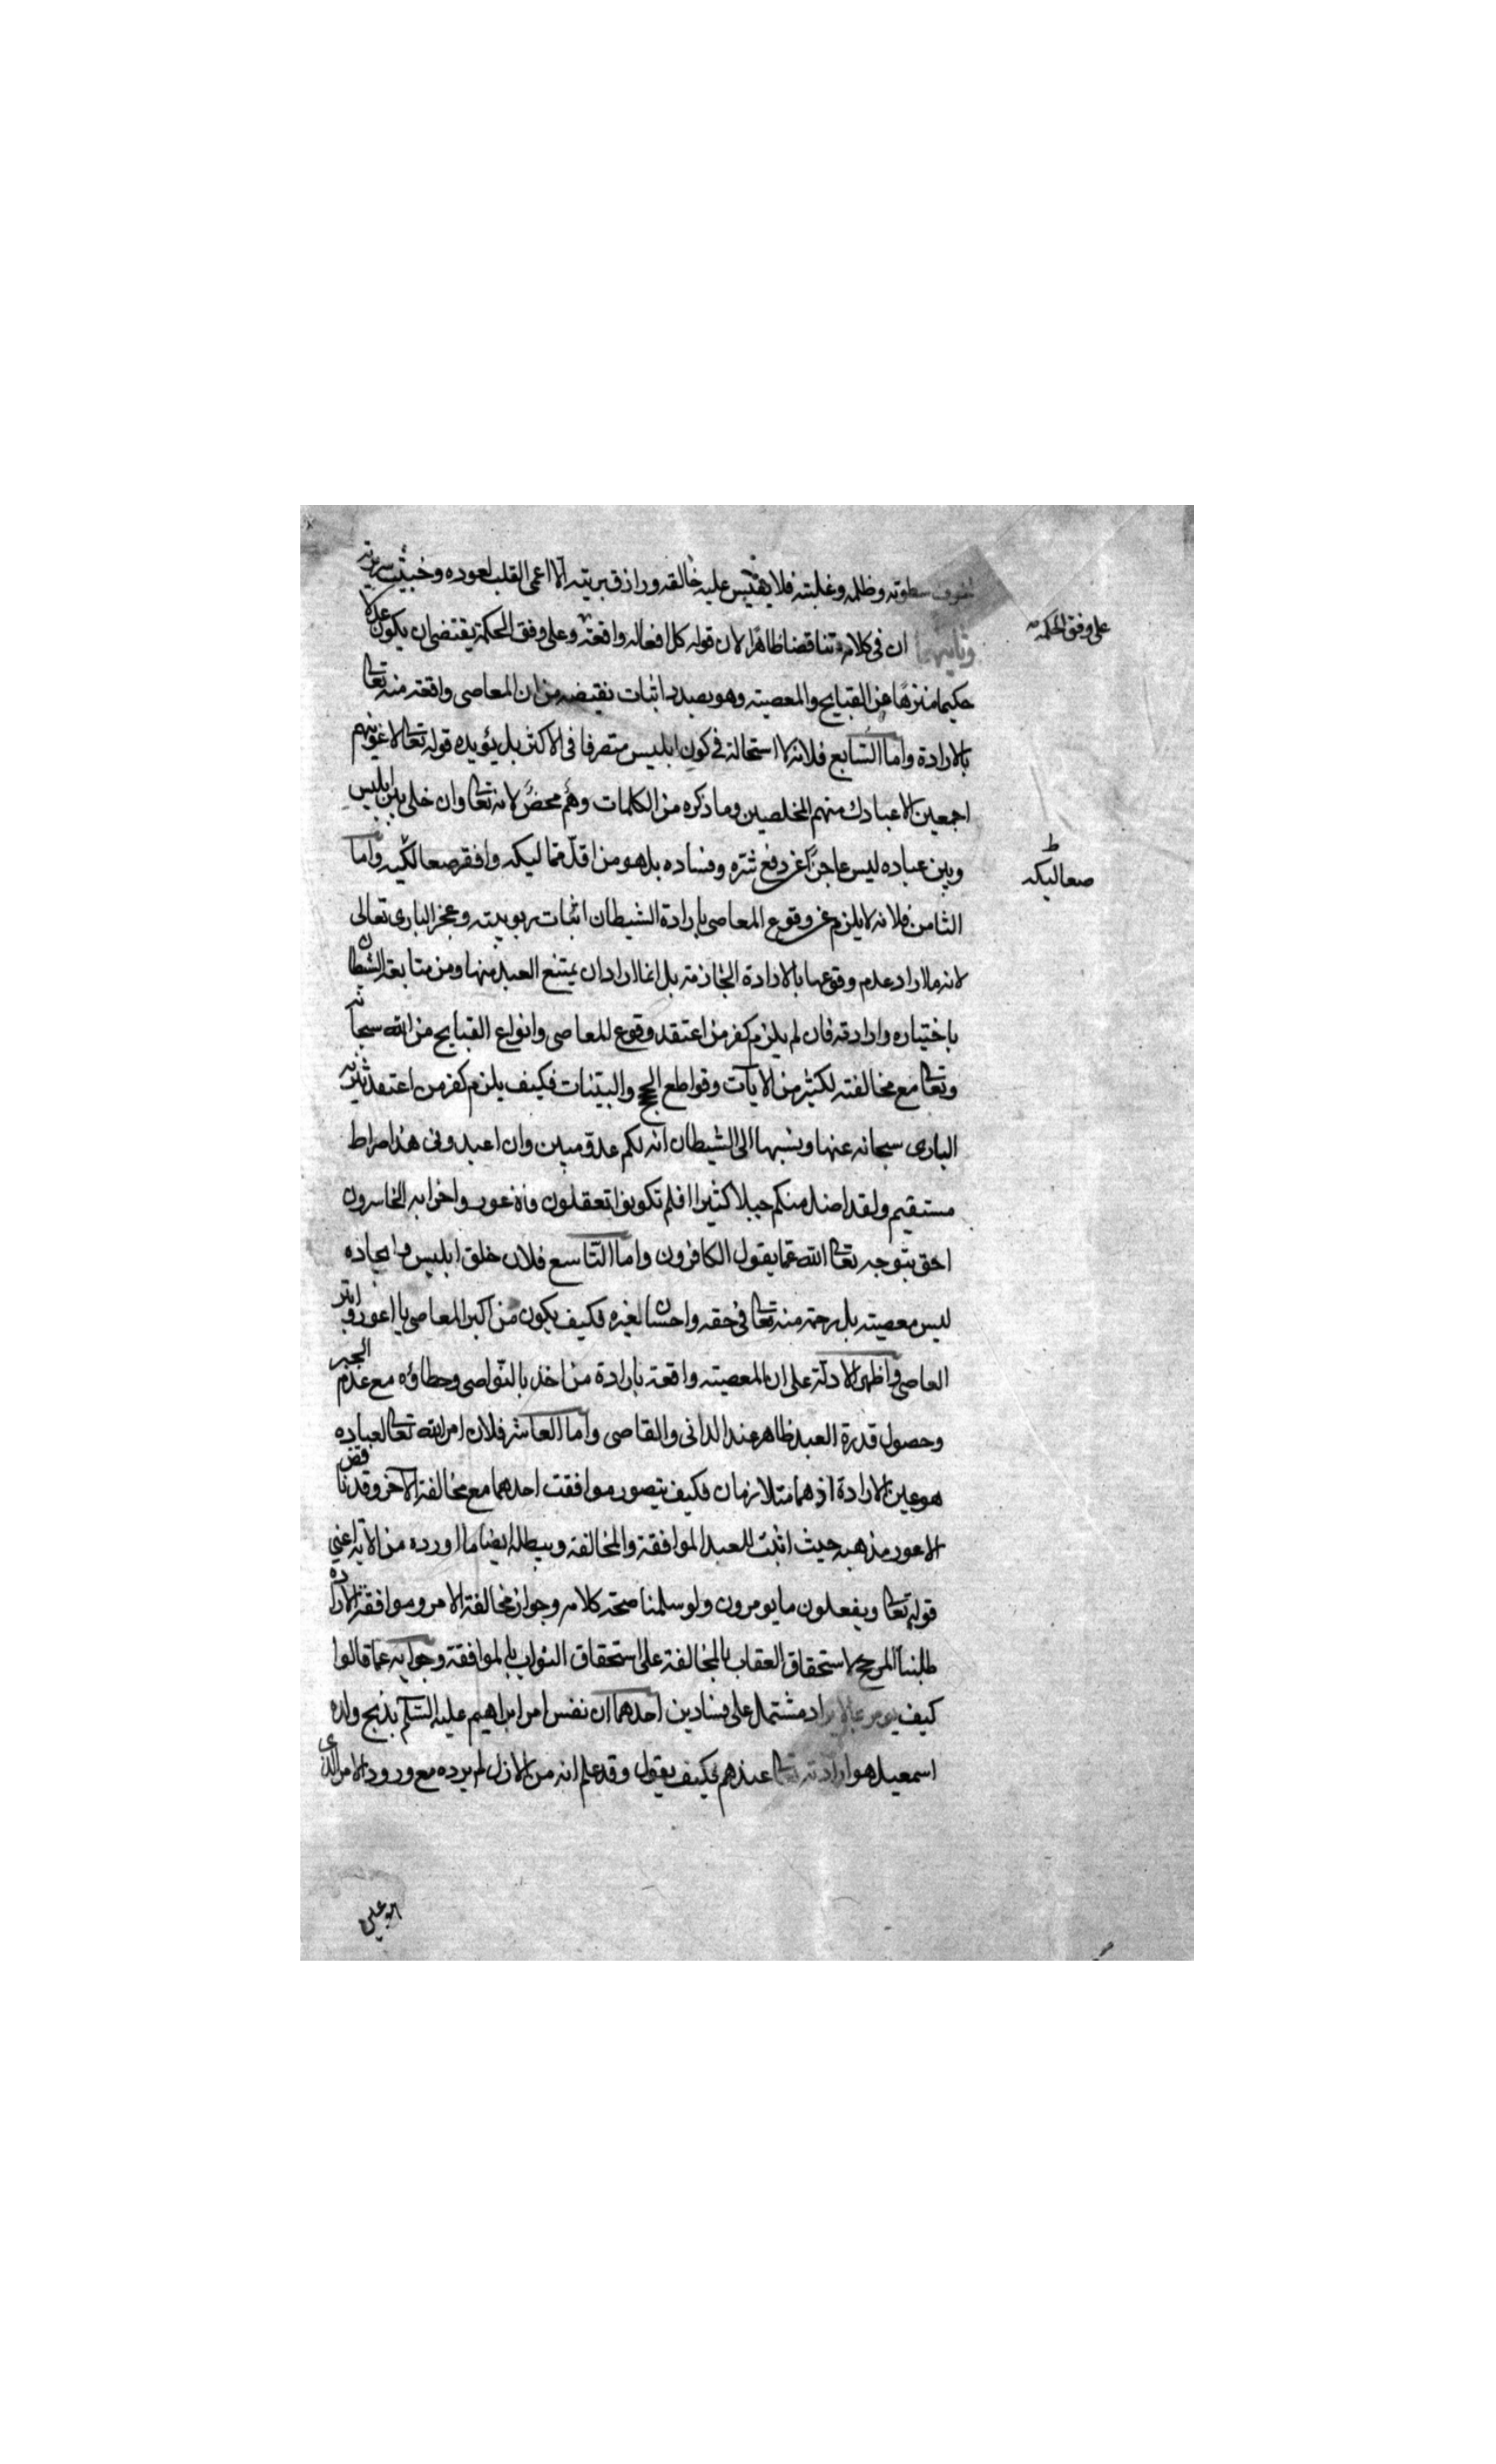 لخوف سطوته وظلمه وغلبته فلا يقيس عليه خالقه ورازق بريته الا اعمى القلب لعوده وخبيث سريرته
وثانيهما ان فى كلامه تناقضا ظاهرا لان قوله كل افعاله واقعة وعلى وفق الحكمة يقتضى ان يكون عدلا
على وفق الحكمة صح
حكيما منزها عن القبايح والمعصية وهو بصدد اثبات نقيضه من ان المعاصى واقعة منه تعالى
بالارادة واما السابع فلانه لا استحالة فى كون ابليس متصرفا فى الاكثر بل يؤيده قوله تعالى لاغوينهم
اجمعين الا عبادك منهم المخلصين وما ذكره من الكلمات وهم محض لانه تعالى وان خلى بين ابليس
وبين عباده ليس عاجزا عن دفع شره وفساده بل هو من اقل مماليكه وافقر صعاليكه واما
صعاليكه ط
الثامن فلانه لا يلزم عن وقوع المعاصى بارادة الشيطان اثبات ربوبيته وعجز البارى تعالى
لانه ما اراد عدم وقوعها بالارادة الجازمة بل انما اراد ان يمتنع العبد منها ومن متابعة الشيطان
باختياره وارادته فان لم يلزم كفر من اعتقد وقوع المعاصى وانواع القبايح من الله سبحانه
وتعالى مع مخالفته لكثير من الايآت وقواطع الحجج والبينات فكيف يلزم كفر من اعتقد تنزيه
البارى سبحانه عنها ونسبها الى الشيطان انه لكم عدو مبين وان اعبدونى هذا صراط
مستقيم ولقد اضل منكم جبلا كثيرا افلم تكونوا تعقلون واخزابه الخاسرون
احق بتوجه تعالى الله عما يقول الكافرون واما التاسع فلان خلق ابليس وايجاده
ليس معصية بل رحمة منه تعالى فى حقه واحسان لغيره فكيف يكون من اكبر المعاصى يا اعور وابتر
العاصى واظهر الادلة على ان المعصية واقعة بارادة من اخذ بالنواصى وخطاؤه مع عدم الجبر
وحصول قدرة العبد ظاهر عند الدانى والقاصى واما العاشر فلان امر الله تعالى لعباده
هو عين الارادة اذ هما متلازمان فكيف يتصور موافقت احدهما مع مخالفة الآخر وقد ناقض
الاعور مذهبه حيث اثبت للعبد الموافقة والمخالفة ويبطله ايضا ما اورده من الآية اعنى
قوله تعالى ويفعلون ما يومرون ولو سلمنا صحة كلامه وجواز مخالفة الامر وموافقة الارادة
طلبنا المرجح لاستحقاق العقاب بالمخالفة على استحقاق الثواب بالموافقة وجوابه عما قالوا
كيف يومر بما لا يراد مشتمل على فسادين احدهما ان نفس امر ابراهيم عليه السلم بذبح ولده
اسمعيل هو ارادته تعالى عندهم فكيف يقول وقد علم انه من الازل لم يرده مع ورود الامر الذى